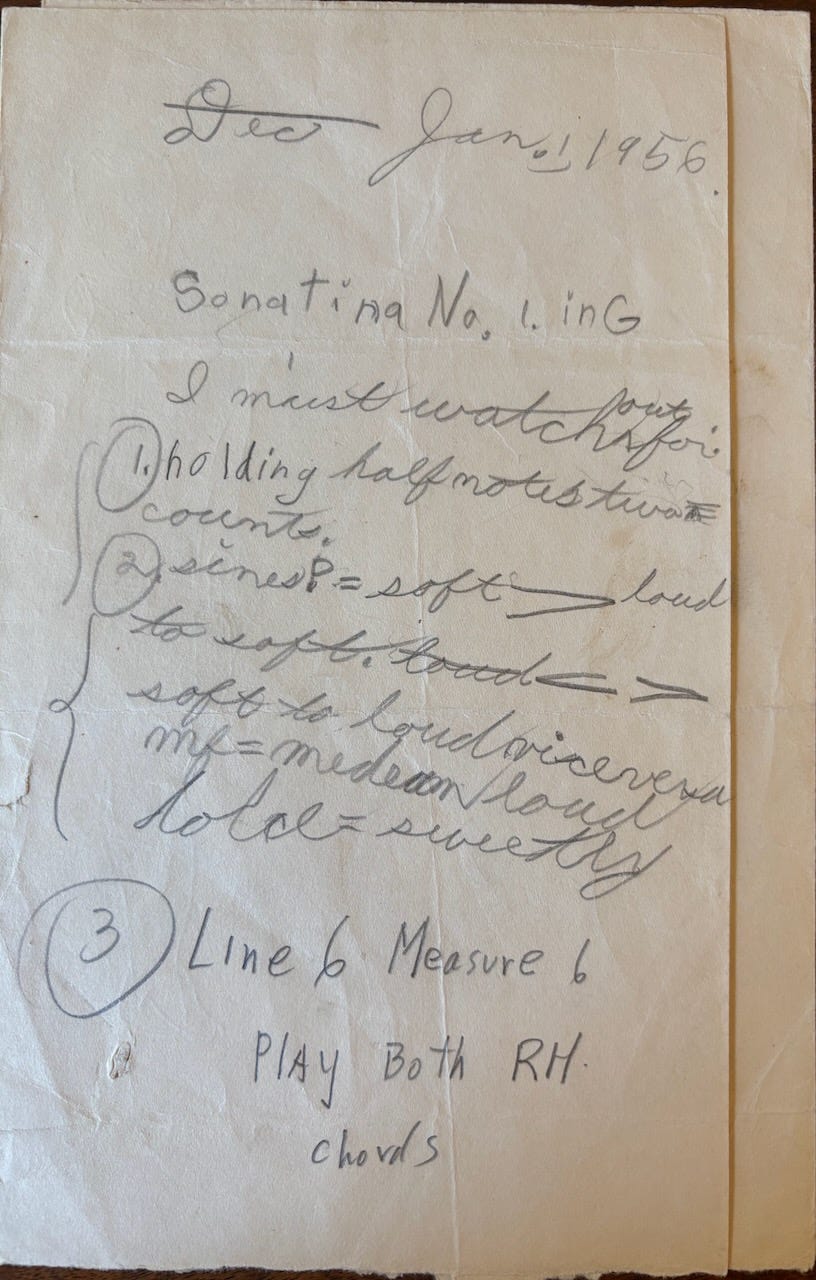 Dec Jan. 1 1956.
Sonatina No. 1. in G
I must watch out for
1. holding half notes two
counts.
2. sines P = soft > loud
to soft. loud < >
soft to loud viceversa
mf = medean loud
= sweetly
3 Line 6 Measure 6
Play Both RH.
chords